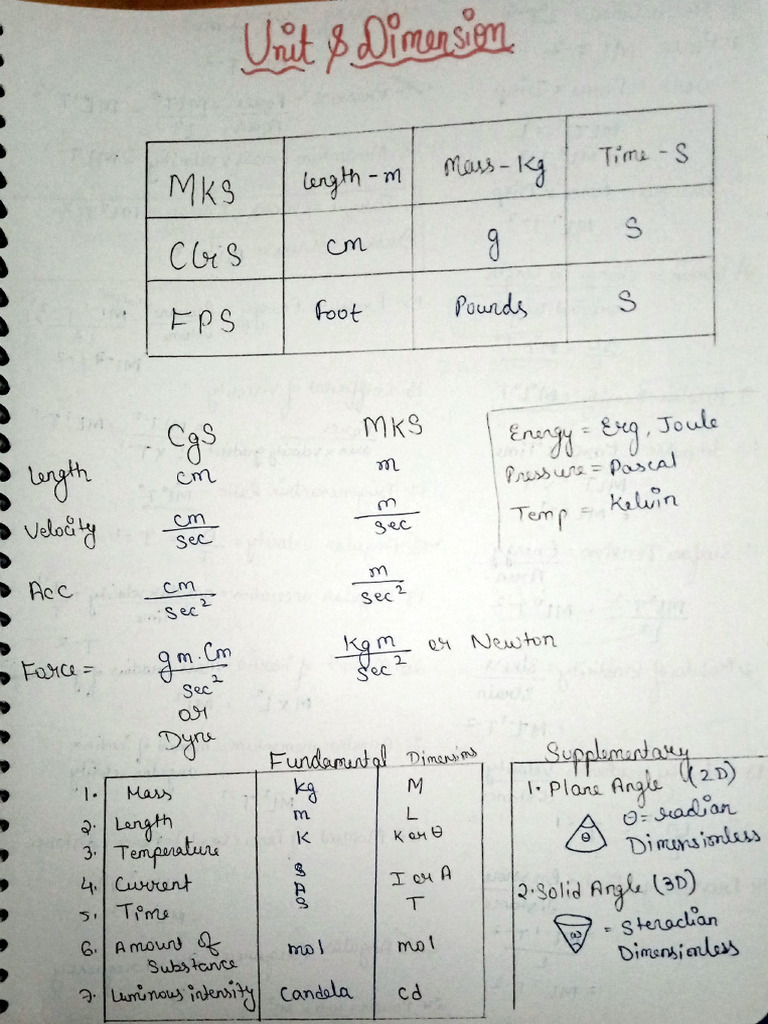 Unit & Dimension
MKS Length - m Mass - Kg Time - S
CGS cm g S
FPS Foot Pounds S
CgS MKS
Length cm m
Velocity cm/sec m/sec
Acc cm/sec² m/sec²
Force = gm.Cm/sec² or Dyne Kgm/sec² or Newton
Energy = Erg, Joule
Pressure = Pascal
Temp = Kelvin
Fundamental Dimensions
1. Mass kg M
2. Length m L
3. Temperature K K or θ
4. Current S A I or A
5. Time S T
6. Amount of Substance mol mol
7. Luminous intensity Candela cd
Supplementary
1. Plane Angle (2D)
θ θ = radian
Dimensionless
2. Solid Angle (3D)
ω = Steradian
Dimensionless